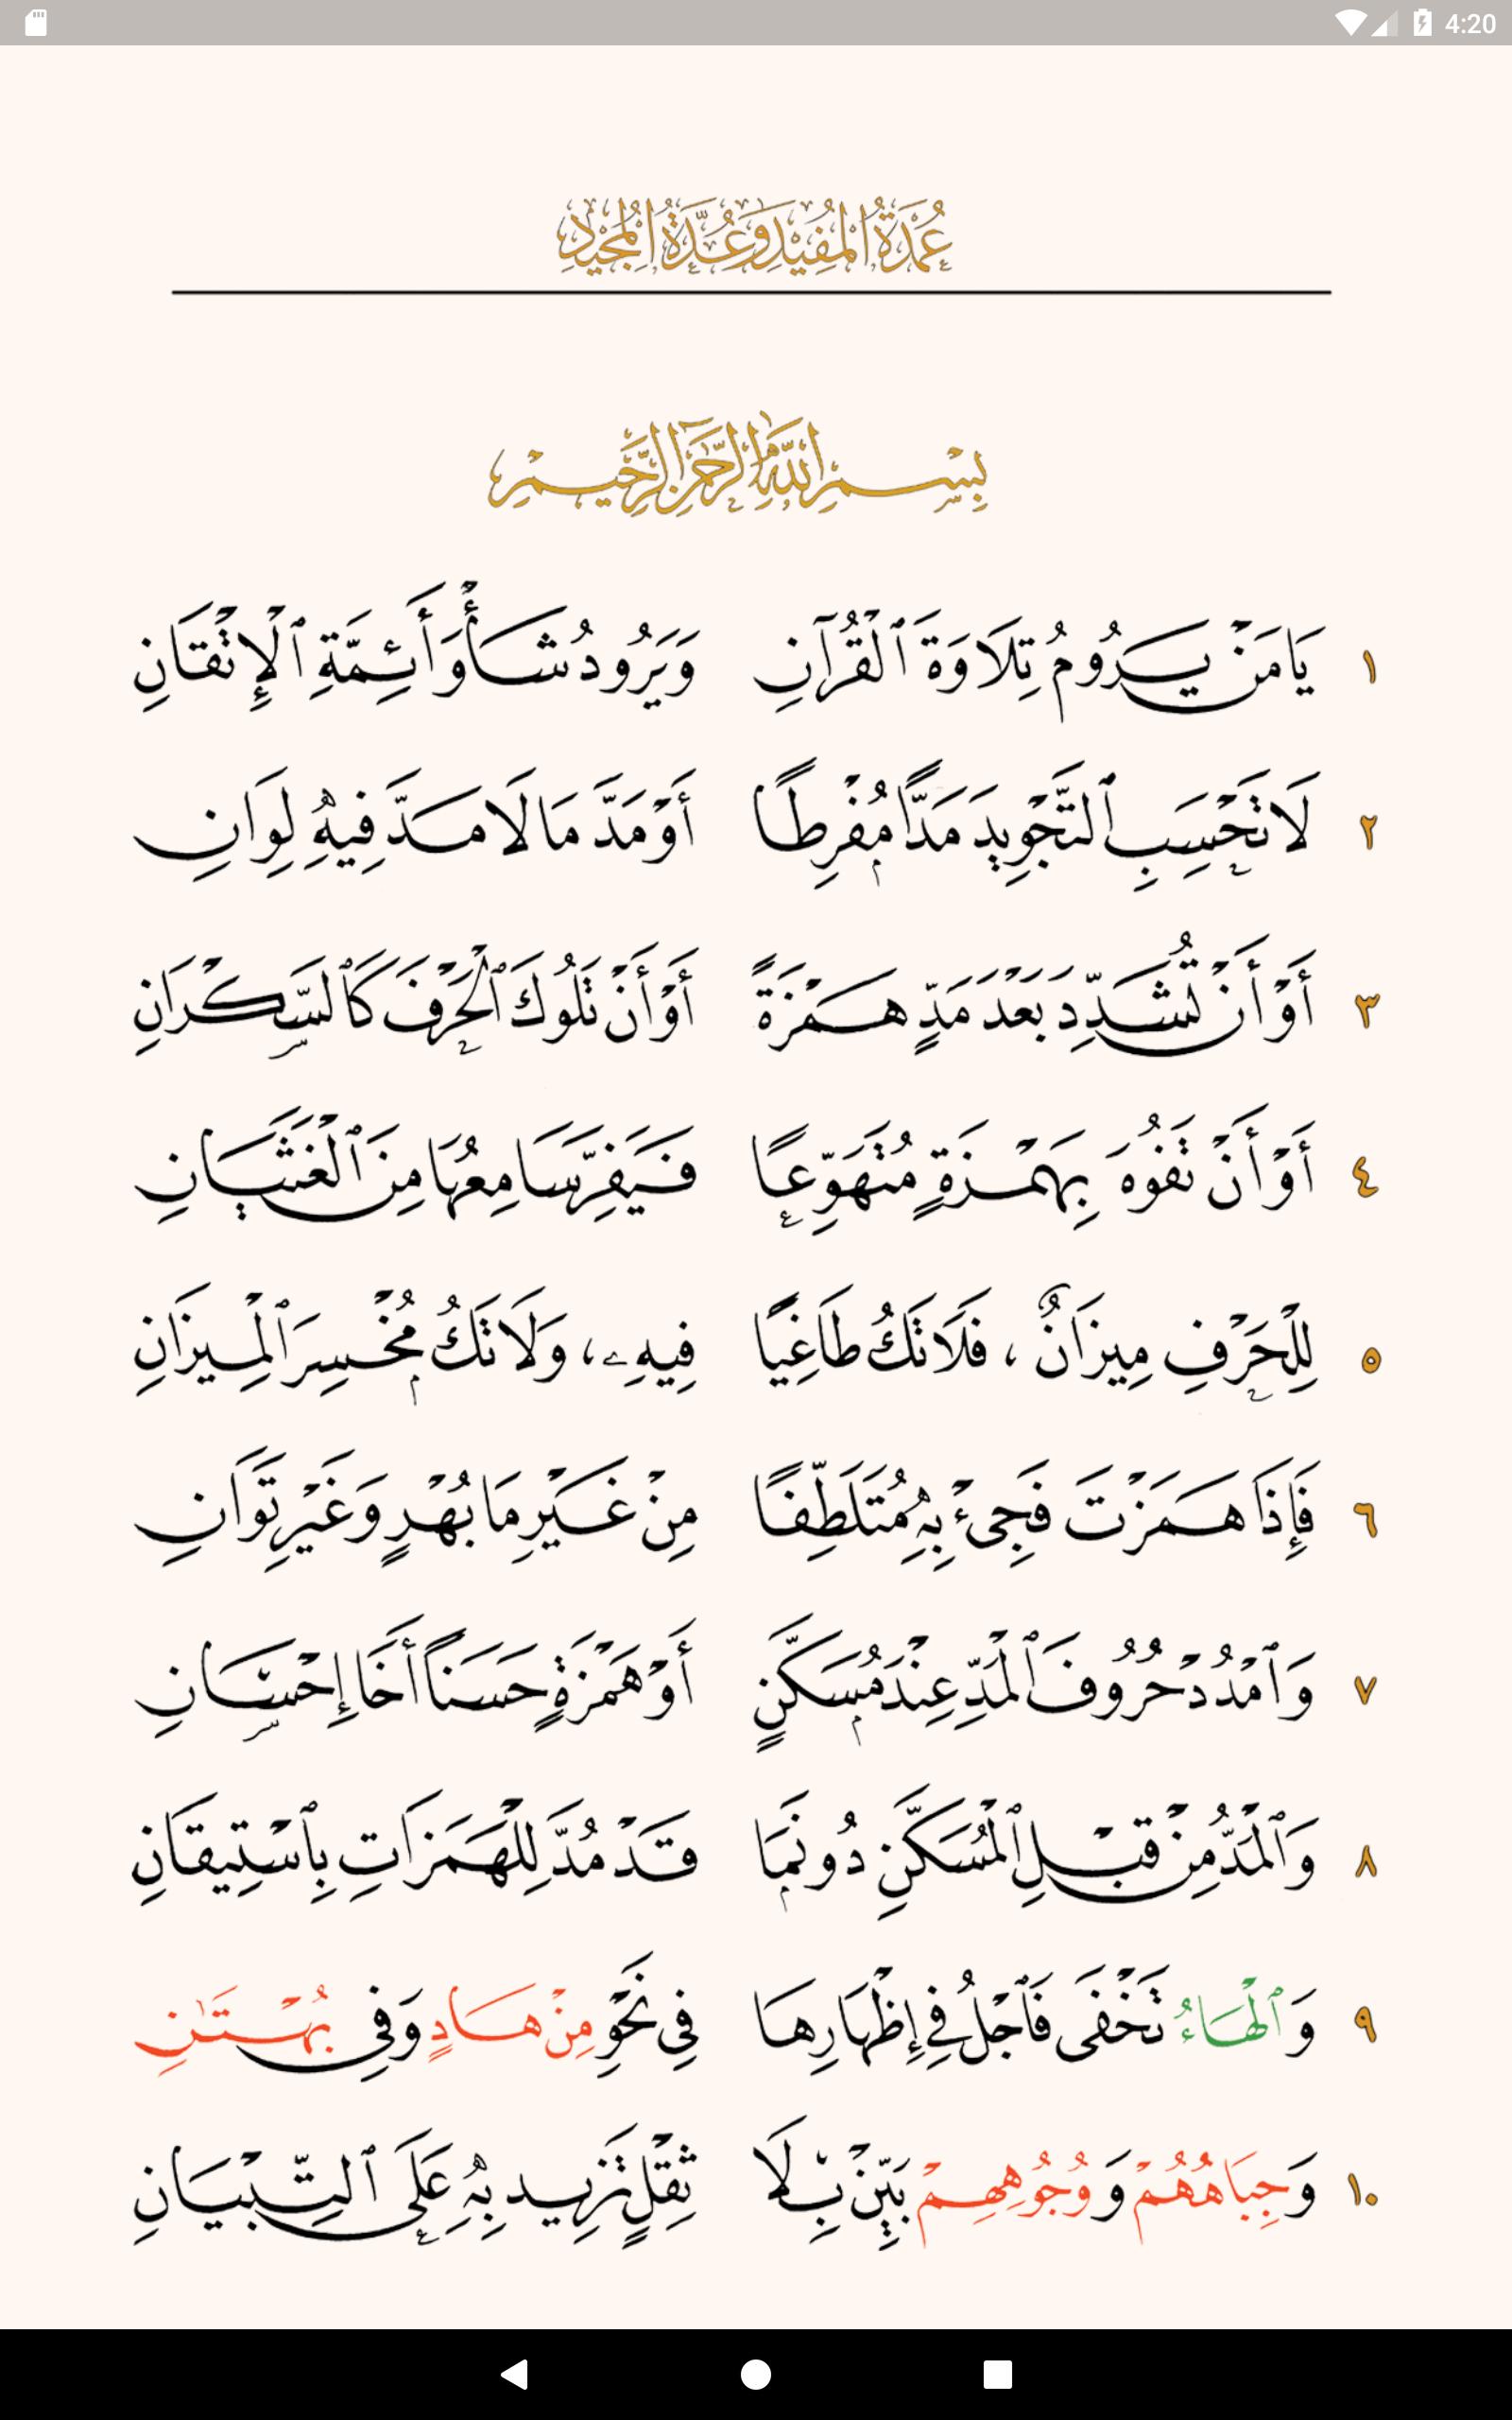 4:20
عُمْدَةُ الْمُفِيدِ وَعُدَّةُ الْمُجِيدِ
بِسْمِ اللَّهِ الرَّحْمَنِ الرَّحِيمِ
١ يَا مَنْ يَرُومُ تِلَاوَةَ ٱلْقُرْآنِ وَيَرُودُ شَأْوَ أَئِمَّةِ ٱلْإِتْقَانِ
٢ لَا تَحْسَبِ ٱلتَّجْوِيدَ مَدًّا مُفْرِطًا أَوْ مَدَّ مَا لَا مَدَّ فِيهِ لِوَانِ
٣ أَوْ أَنْ تُشَدِّدَ بَعْدَ مَدٍّ هَمْزَةً أَوْ أَنْ تَلُوكَ ٱلْحَرْفَ كَٱلسَّكْرَانِ
٤ أَوْ أَنْ تَفُوهَ بِهَمْزَةٍ مُتَهَوِّعًا فَيَفِرَّ سَامِعُهَا مِنَ ٱلْغَثَيَانِ
٥ لِلْحَرْفِ مِيزَانٌ ، فَلَا تَكُ طَاغِيًا فِيهِ ، وَلَا تَكُ مُخْسِرَ ٱلْمِيزَانِ
٦ فَإِذَا هَمَزْتَ فَجِىْٔ بِهِ مُتَلَطِّفًا مِنْ غَيْرِ مَا بُهْرٍ وَغَيْرِ تَوَانِ
٧ وَٱمْدُدْ حُرُوفَ ٱلْمَدِّ عِنْدَ مُسَكَّنٍ أَوْ هَمْزَةٍ حَسَنًا أَخَا إِحْسَانِ
٨ وَٱلْمَدُّ مِنْ قَبْلِ ٱلْمُسَكَّنِ دُونَ مَا قَدْ مُدَّ لِلْهَمَزَاتِ بِٱسْتِيقَانِ
٩ وَٱلْهَاءُ تَخْفَى فَٱجْلُ فِي إِظْهَارِهَا فِي نَحْوِ مِنْ هَادٍ وَفِي بُهْتَٰنِ
١٠ وَجِبَاهُهُمْ وَوُجُوهِهِمْ بَيِّنْ بِلَا ثِقْلٍ تَزِيدُ بِهِ عَلَى ٱلتِّبْيَانِ